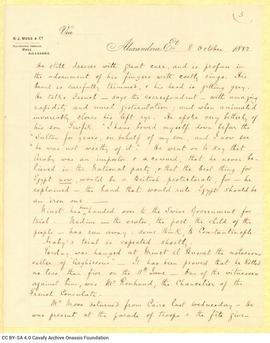 (3)
Via
R. J. MOSS & Co
ALEXANDRIA.
Alexandria, Egt 8 October 1882
He still dresses with great care, and is profuse in
the adornment of his fingers with costly rings. His
beard is carefully trimmed, & his head is getting grey.
He talks French - says the correspondent - with amazing
rapidity and much gesticulation; and when animated
invariably closes his left eye. He spoke very bitterly of
his son Tewfik. "I have bowed myself down before the
Sultan for years, on behalf of my son; and I now see
he was not worthy of it". He went on to say that
Araby was an impostor & a coward, that he never be-
lieved in the National party, & that the best thing for
Egypt now would be a British protectorate, for - as he
explained - the hand that would rule Egypt should be
an iron one -
Ninet has handed over to the Swiss Government for
trial. Nedim - the orator, the poet, the child of the
people - has run away: some think, to Constantinople.
Araby's trial is expected shortly,
Yesterday was hanged at Minet el Bassal the notorious
caller of Arghissian - it has been proved that he killed
no less than five on the 11th June - One of the witnesses
against him, was Mr Ronhand, the Chancelier of the
French Consulate.
Mr Moss returned from Cairo last Wednesday - He
was present at the parade of troops & the fêtes given
CC BY-SA 4.0 Cavafy Archive Onassis Foundation